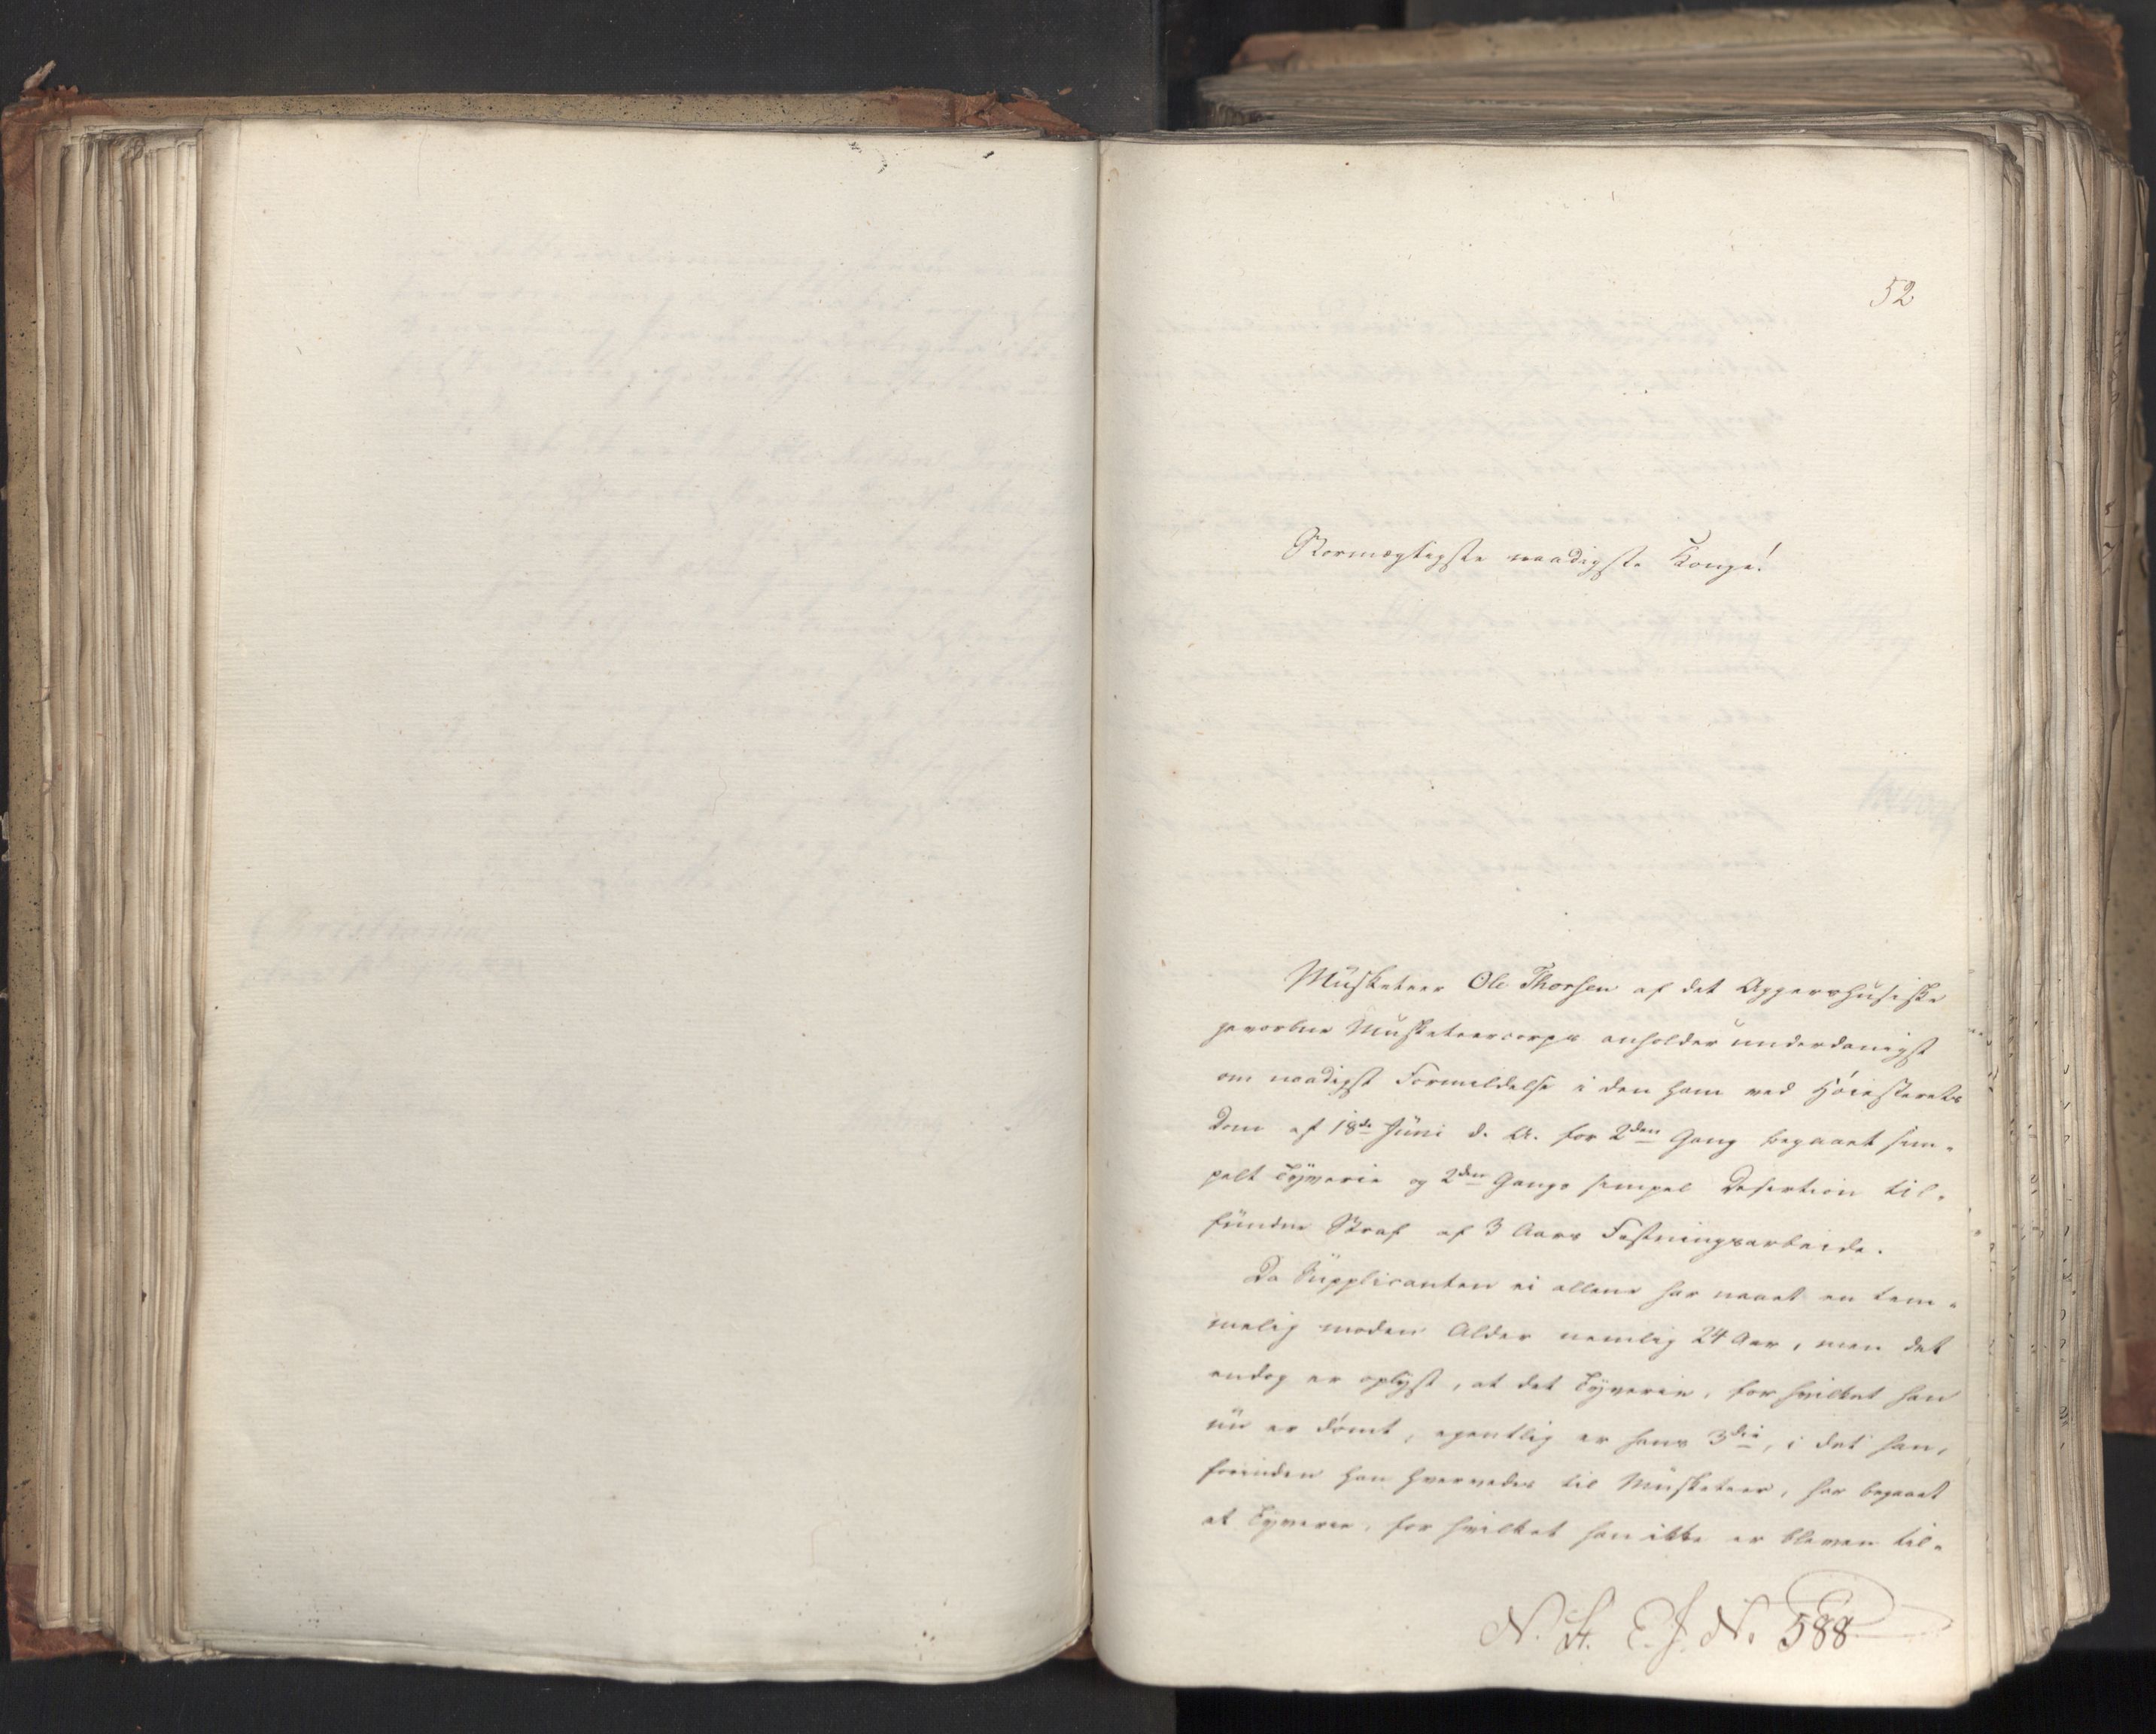 52
Stormægtigste naadigste Konge!
Musketeer Ole Thorsen af det Aggershusiske
gevorbne Musketeercorps anholder underdanigst
om naadigst Formildelse i den ham ved Höiesterets
Dom af 18de Juni d. A. for 2den Gang begaaet sim-
pelt Tyverie og 2den Gangs simpel Desertion til-
fundne Straf af 3 Aars Fæstningsarbeide.
Da Supplicanten ei allene har naaet en tem-
melig moden Alder nemlig 24 Aar, men det
endog er oplyst, at det Tyverie, for hvilket han
nu er dömt, egentlig er hans 3die, i det han,
forinden han hvervedes til Musketeer, har begaaet
et Tyverie, for hvilket han ikke er bleven til-
N. St. E. J. N. 588